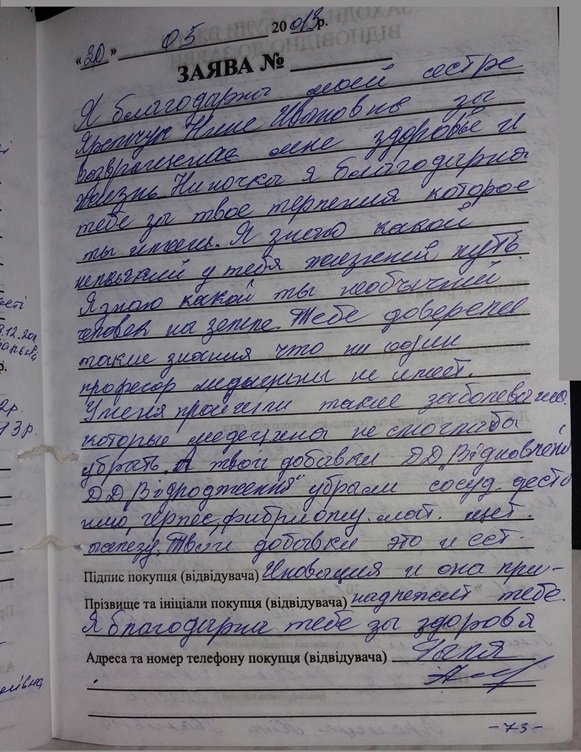 ЗАХОДИ
ВІДПОВІДНО ДО ЗАПИ
«30» 05 2013р.
ЗАЯВА №
Я благодарна моей сестре
Нине Ивановне за
возвращение мне здоровье и
жизнь. Ниночка я благодарна
тебе за твое терпения которое
ты имееш. Я знаю какой
нелегкий у тебя жизненый путь.
Я знаю какой ты необычный
человек на земле. Тебе доверенее
такие знания что ни один
професор медицины не имеет.
У меня прошели такие заболевания.
которые медецина не смоглабы
убрать. А твои добавки Д.Д "Відновлення
Д.Д "Відродження" убрали сосуд. дисто
нию, герпес, фибриому. мат. щит.
Твои добавки это и ест.
Підпис покупця (відвідувача) Иновация и она при-
Прізвище та ініціали покупця (відвідувача) надлежит тебе.
Я благодарна тебе за здоровя
Адреса та номер телефону покупця (відвідувача) Галя
-73-